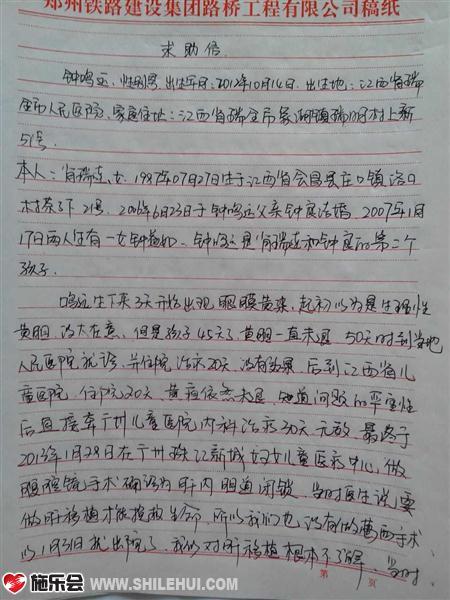 郑州铁路建设集团路桥工程有限公司稿纸
求助信
钟鸣远，性别男 出生年月：2012年10月14日，出生地：江西省瑞
金市人民医院，家庭住址：江西省瑞金市象湖镇瑞明村上新
51号
本人：肖瑞连，女，1987年07月27日生于江西省会昌县庄口镇洛口
村茶子下21号，2006年6月23日于钟鸣远父亲钟良结婚，2007年1月
17日两人生有一女钟如，钟鸣远是肖瑞连和钟良的第二个
孩子。
鸣远生下来3天开始出现眼膜黄染，起初以为是生理性
黄胆，没大在意，但是孩子45天了，黄胆一直未退，50天时到当地
人民医院就诊，并住院治疗20天，没有效果，后到江西省儿
童医院，住院20天，黄疸依然未退，知道问题的严重性
后直接奔广州儿童医院内科治疗30天无效，最终于
2013年1月28日在广州珠江新城妇女儿童医疗中心，做
腹腔镜手术确诊为肝内胆道闭锁，当时医生说要
做肝移植才能挽救生命，所以我们也没有做葛西手术
以1月31日就出院了，我们对肝移植根本不了解，当时
第 页
施乐会
WWW.SHILEHUI.COM